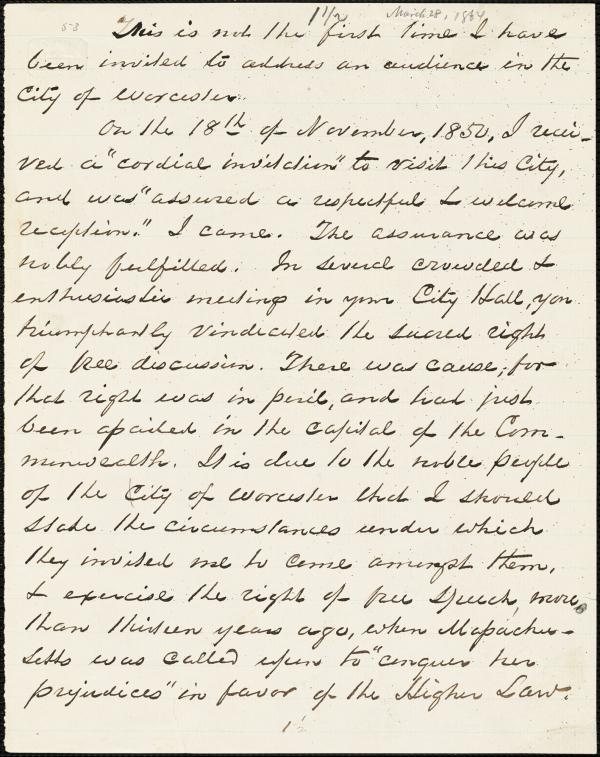 53 1 1/2 March 28, 1864
This is not the first time I have
been invited to address an audience in the
City of Worcester.
On the 18th of November, 1850, I recei-
ved a "cordial invitation" to visit this City,
and was "assured a respectful & welcome
reception." I came. The assurance was
nobly fulfilled. In several crowded &
enthusiastic meetings in your City Hall, you
triumphantly vindicated the sacred right
of free discussion. There was cause, for
that right was in peril, and had just
been assailed in the capital of the Com-
monwealth. It is due to the noble people
of the City of Worcester that I should
state the circumstances under which
they invited me to come amongst them,
& exercise the right of free speech, more
than thirteen years ago, when Massachu-
setts was called upon to "conquer her
prejudices" in favor of the Higher Law.
1 1/2